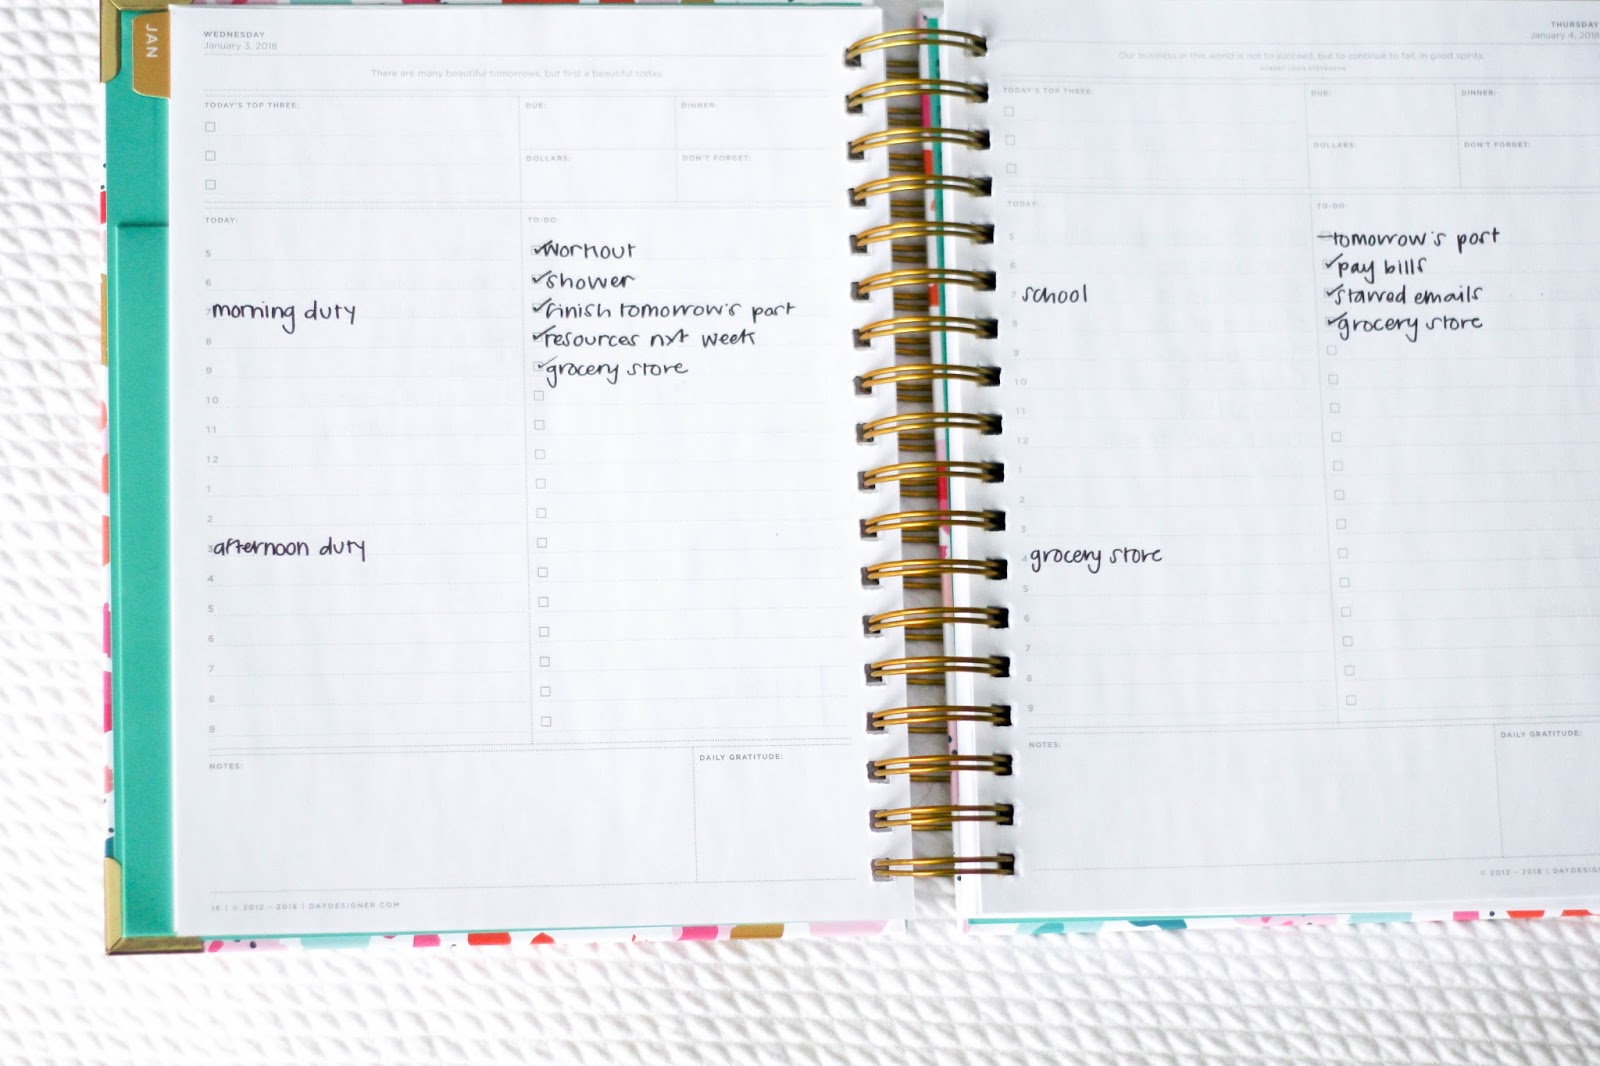 JAN
WEDNESDAY
January 3, 2018
There are many beautiful tomorrows, but first a beautiful today.
TODAY'S TOP THREE:
DUE:
DINNER:
DOLLARS:
DON'T FORGET:
TODAY:
TO-DO:
5
6
7 morning duty
8
9
10
11
12
1
2
3 afternoon duty
4
5
6
7
8
9
workout
shower
finish tomorrow's post
resources nxt week
grocery store
NOTES:
DAILY GRATITUDE:
16 | © 2012 - 2018 | DAYDESIGNER.COM
THURSDAY
January 4, 2018
Our business in this world is not to succeed, but to continue to fail, in good spirits.
ROBERT LOUIS STEVENSON
TODAY'S TOP THREE:
DUE:
DINNER:
DOLLARS:
DON'T FORGET:
TODAY:
TO-DO:
5
6
7 school
8
9
10
11
12
1
2
3
4 grocery store
5
6
7
8
9
tomorrow's post
pay bills
starred emails
grocery store
NOTES:
DAILY GRATITUDE:
© 2012 - 2018 | DAYDESIGN